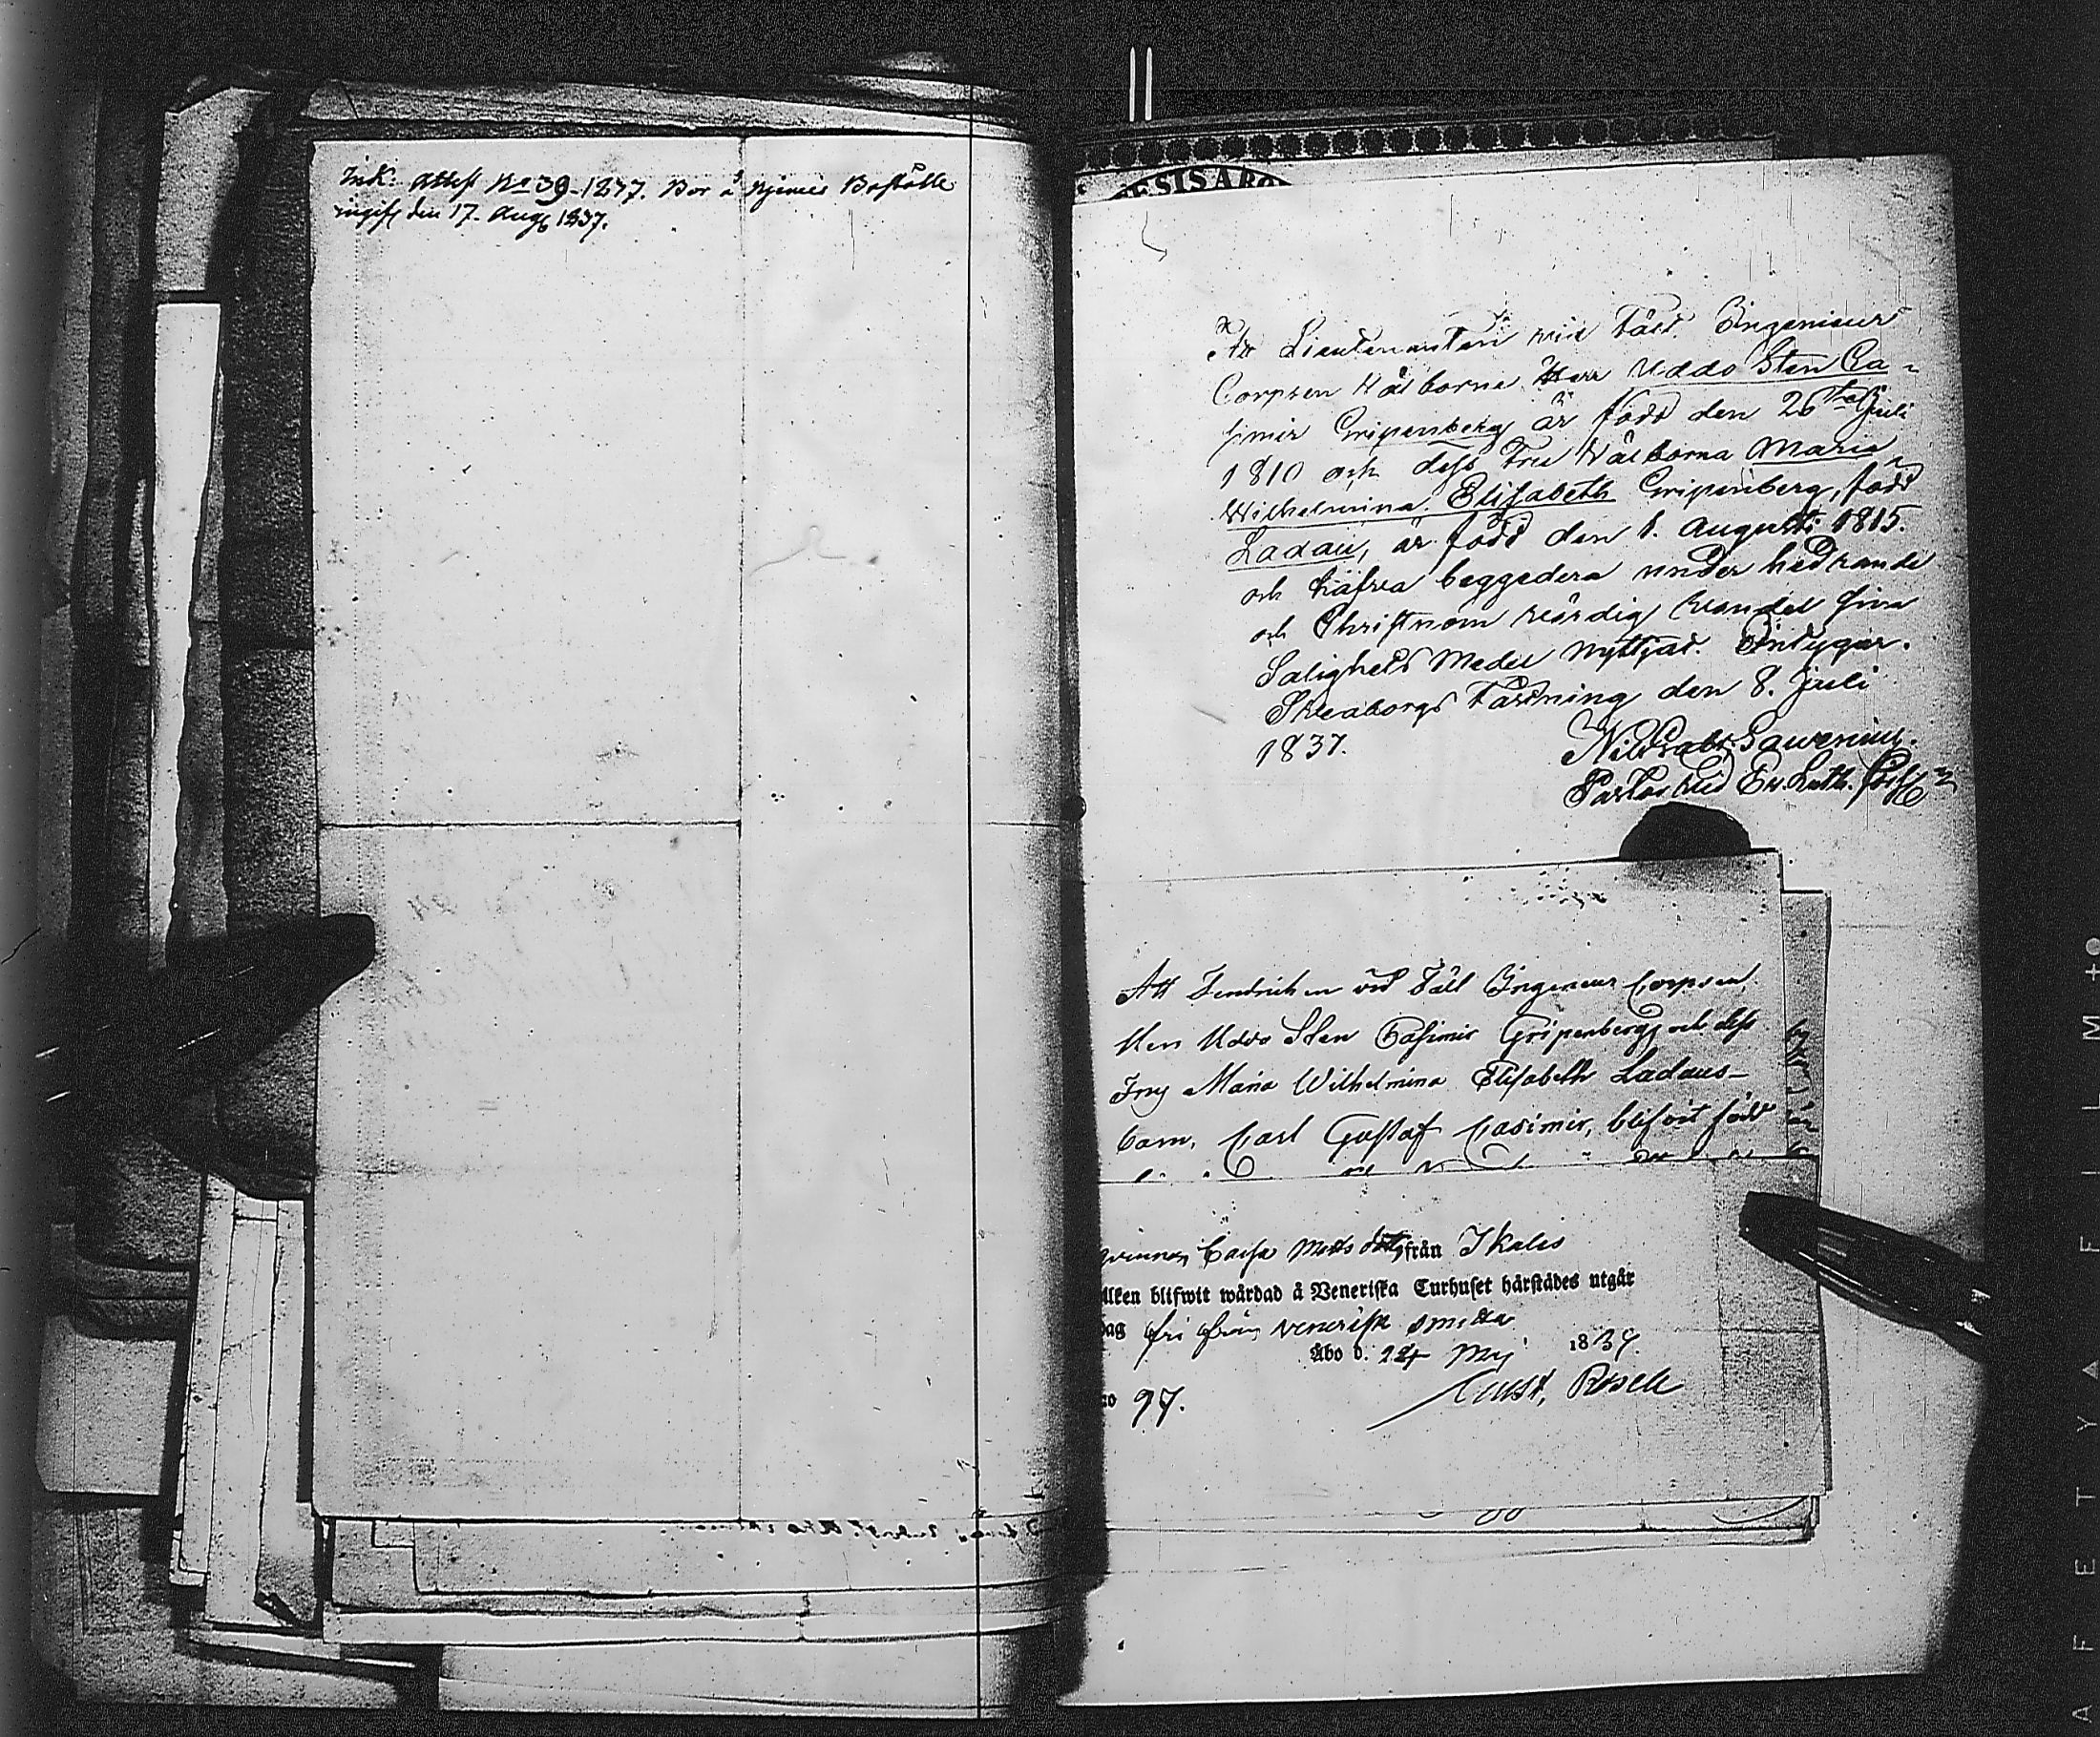 Ink: Attest No 39-1837. Bor å Boställe
ingift den 17. Aug 1837.
ESIS ABO
Att Lieutenanten vid Fält Ingenieur
Corpsen Välborne Herr Uddo Sten Ca-
simir Gripenberg är född den 26 Juli
1810 och dess Fru Välborna Maria
Wilhelmina Elisabeth Gripenberg, född
Ladau, är född den 1. Augusti 1815.
och hafva beggedera under hedrande
och Christnom värdig vandel sina
Salighets Medel nyttjat. Intygar.
Sveaborgs Fästning den 8. Juli
1837.
Pastor vid Ev. Luth.
Att Fendriken vid Fält Ingenieur Corpsen
Herr Udo Sten Casimir Gripenberg och dess
Fru Maria Wilhelmina Elisabeth Ladaus-
barn, Carl Gustaf Casimir, blifvit född
qvinnan Caisa Matts dotter från Ikalis
ilken blifwit wårdad å Veneriska Curhuset härstädes utgår
dag fri från venerisk smitta
Åbo d. 24 Maj 1834.
no 97.
A F E T Y A F I L M